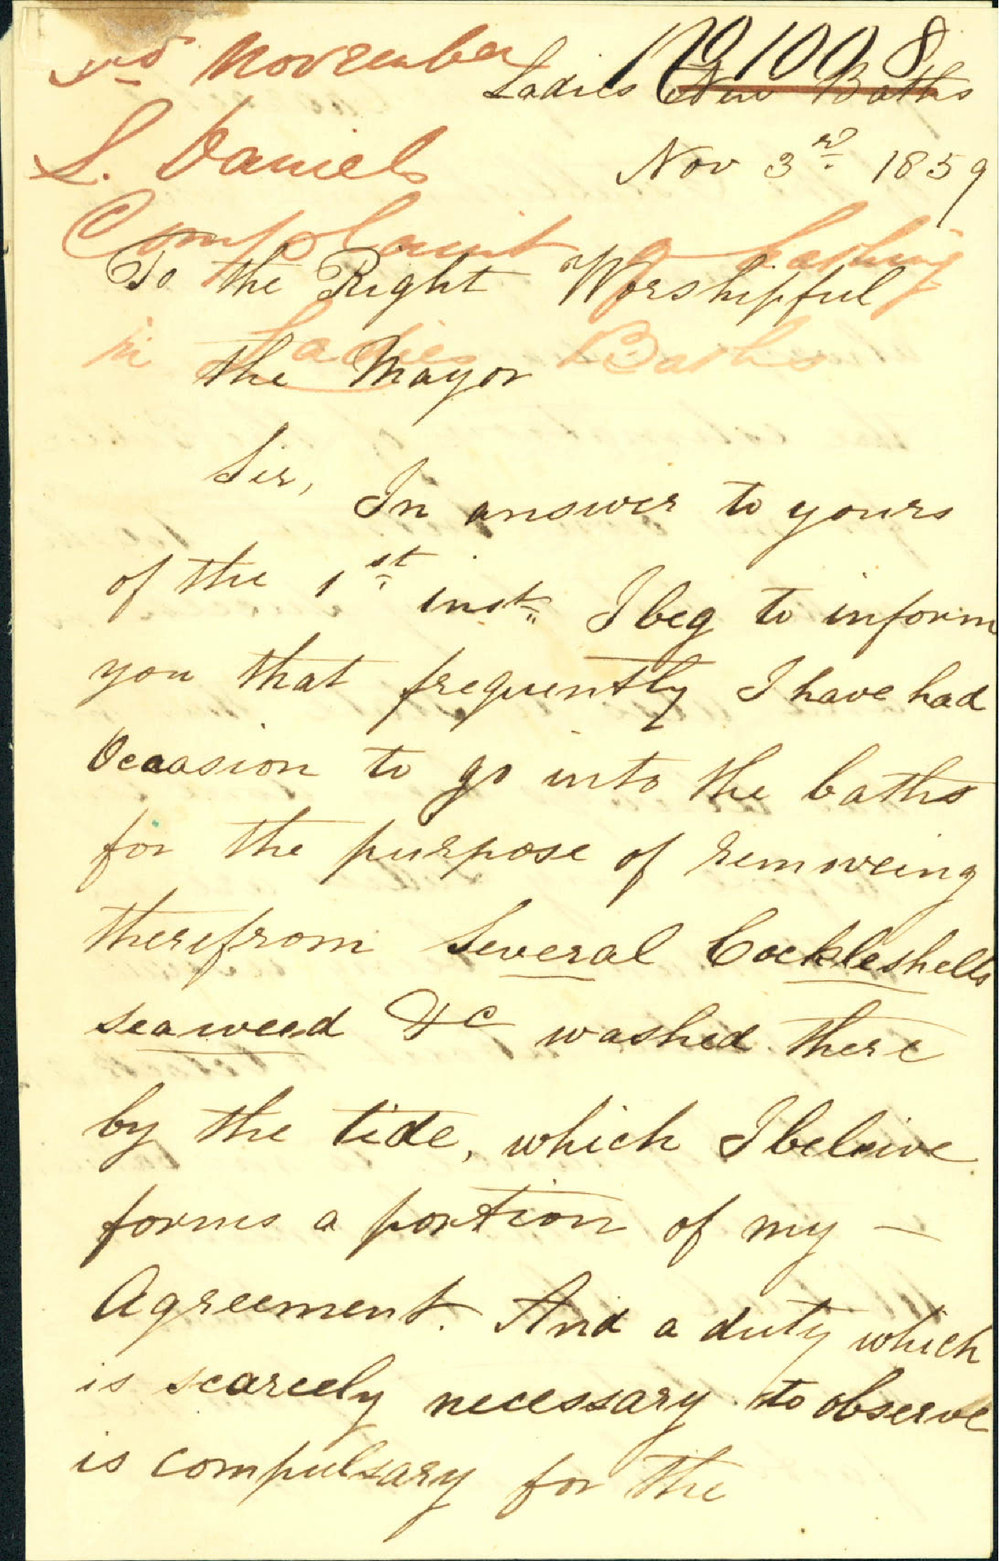 3rd November
No 1008
Ladies New Baths
S. Daniels
Nov 3rd. 1859
Complaint of bathing
To the Right Worshipful
in Ladies Baths
the Mayor
Sir, In answer to yours
of the 1st. inst. I beg to inform
you that frequently I have had
Occasion to go into the baths
for the purpose of removeing
therefrom Several Cockleshells
seaweed &c washed there
by the tide, which I beleive
forms a portion of my —
Agreement. And a duty which
is scarcely necessary to observe
is compulsary for the